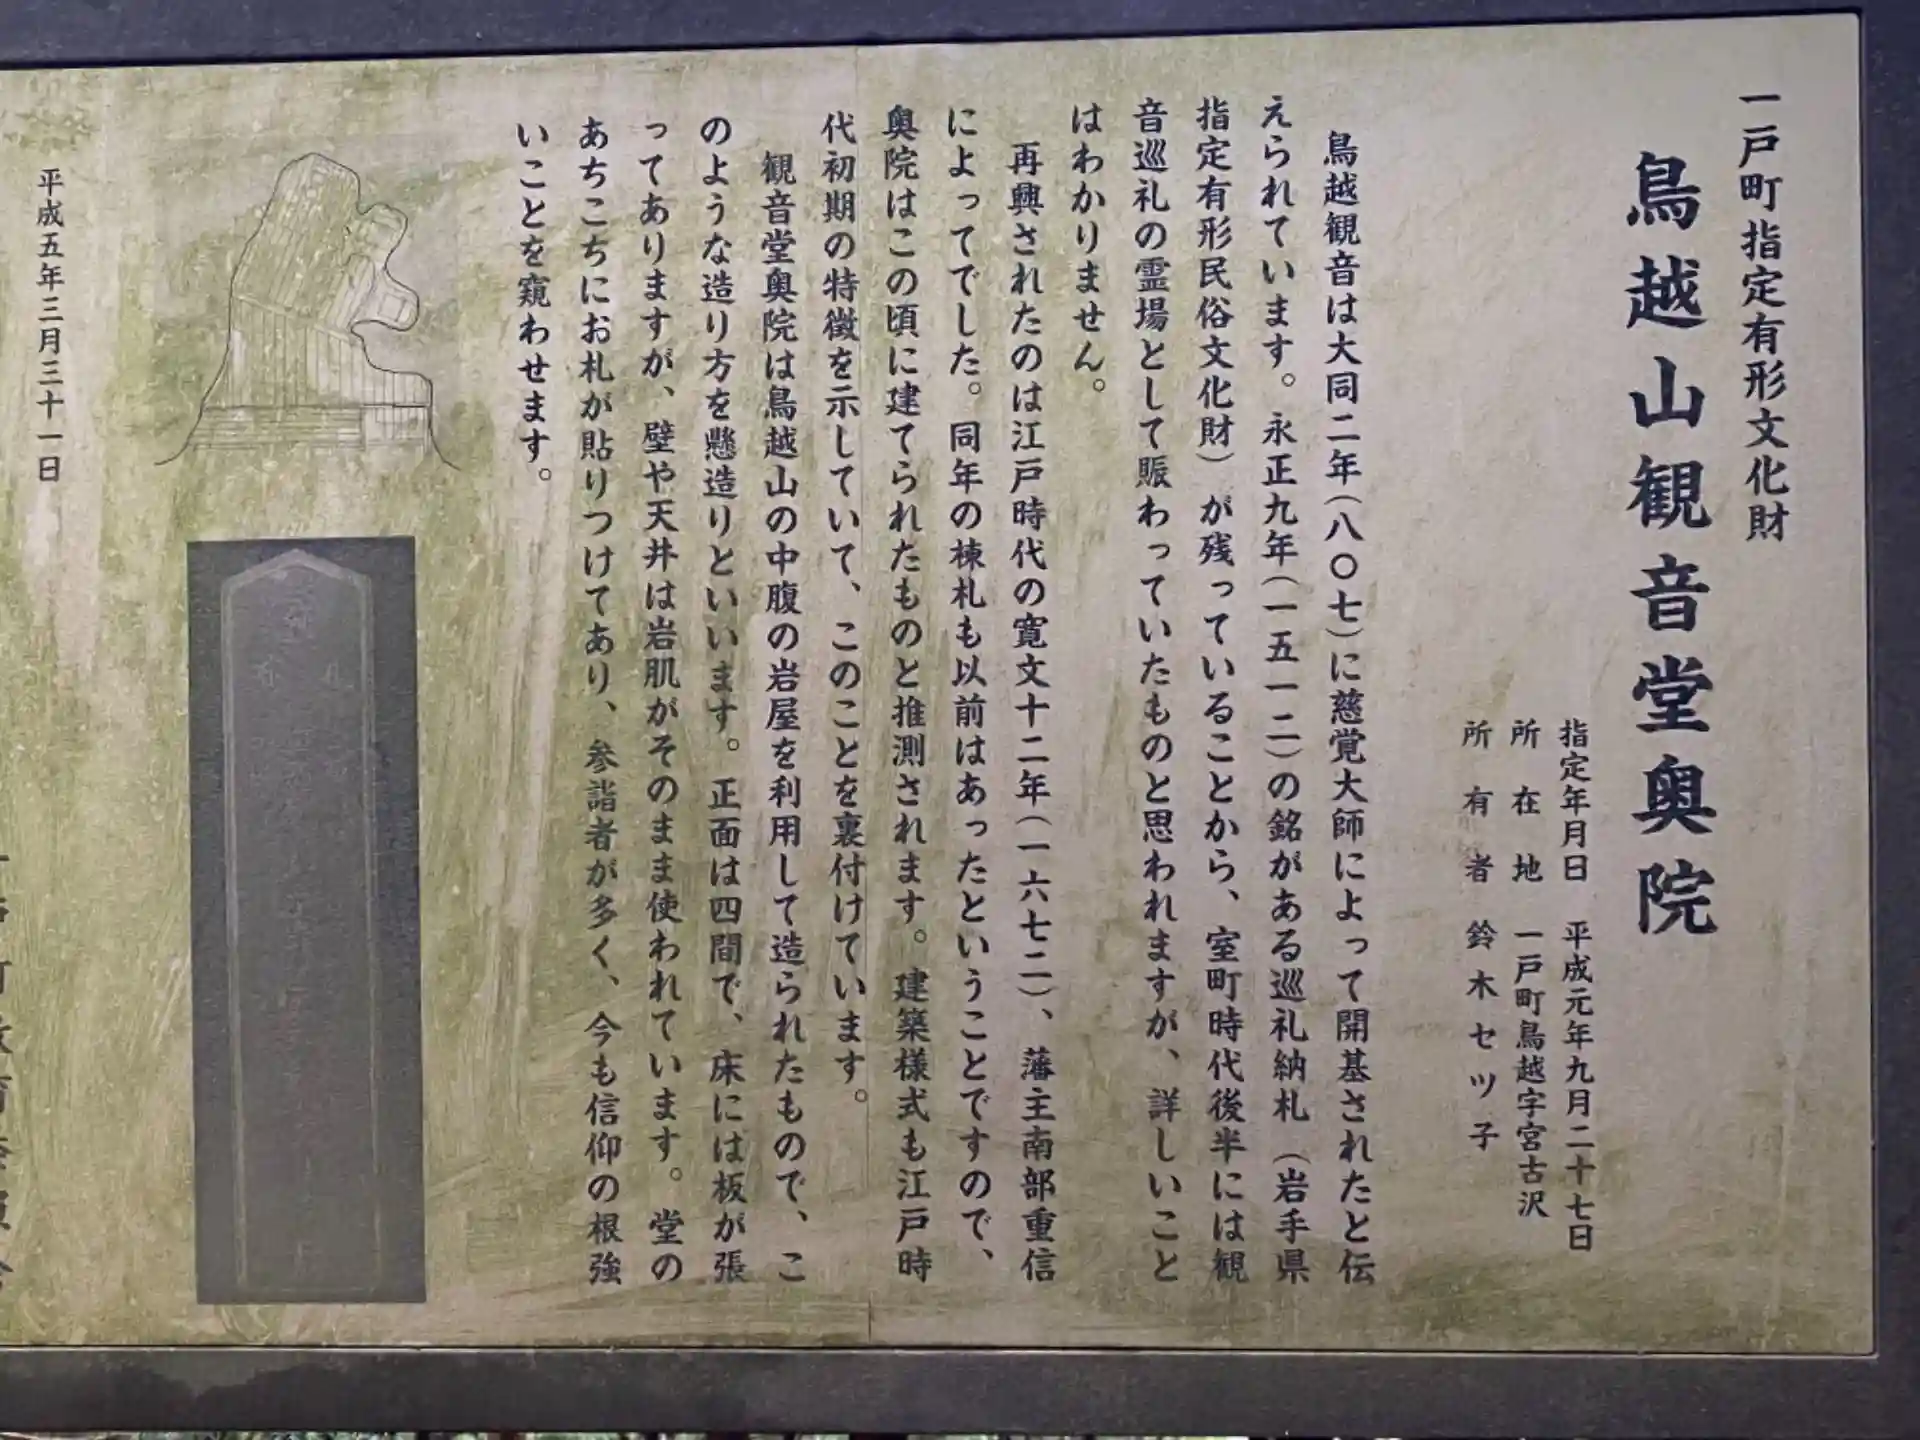 一戸町指定有形文化財
鳥越山観音堂奥院
指定年月日　平成元年九月二十七日
所在地　一戸町鳥越字宮古沢
所有者　鈴木セツ子
鳥越観音は大同二年（八〇七）に慈覚大師によって開基されたと伝
えられています。永正九年（一五一二）の銘がある巡礼納札（岩手県
指定有形民俗文化財）が残っていることから、室町時代後半には観
音巡礼の霊場として賑わっていたものと思われますが、詳しいこと
はわかりません。
再興されたのは江戸時代の寛文十二年（一六七二）、藩主南部重信
によってでした。同年の棟札も以前はあったということですので、
奥院はこの頃に建てられたものと推測されます。建築様式も江戸時
代初期の特徴を示していて、このことを裏付けています。
観音堂奥院は鳥越山の中腹の岩屋を利用して造られたもので、こ
のような造り方を懸造りといいます。正面は四間で、床には板が張
ってありますが、壁や天井は岩肌がそのまま使われています。堂の
あちこちにお札が貼りつけてあり、参詣者が多く、今も信仰の根強
いことを窺わせます。
平成五年三月三十一日